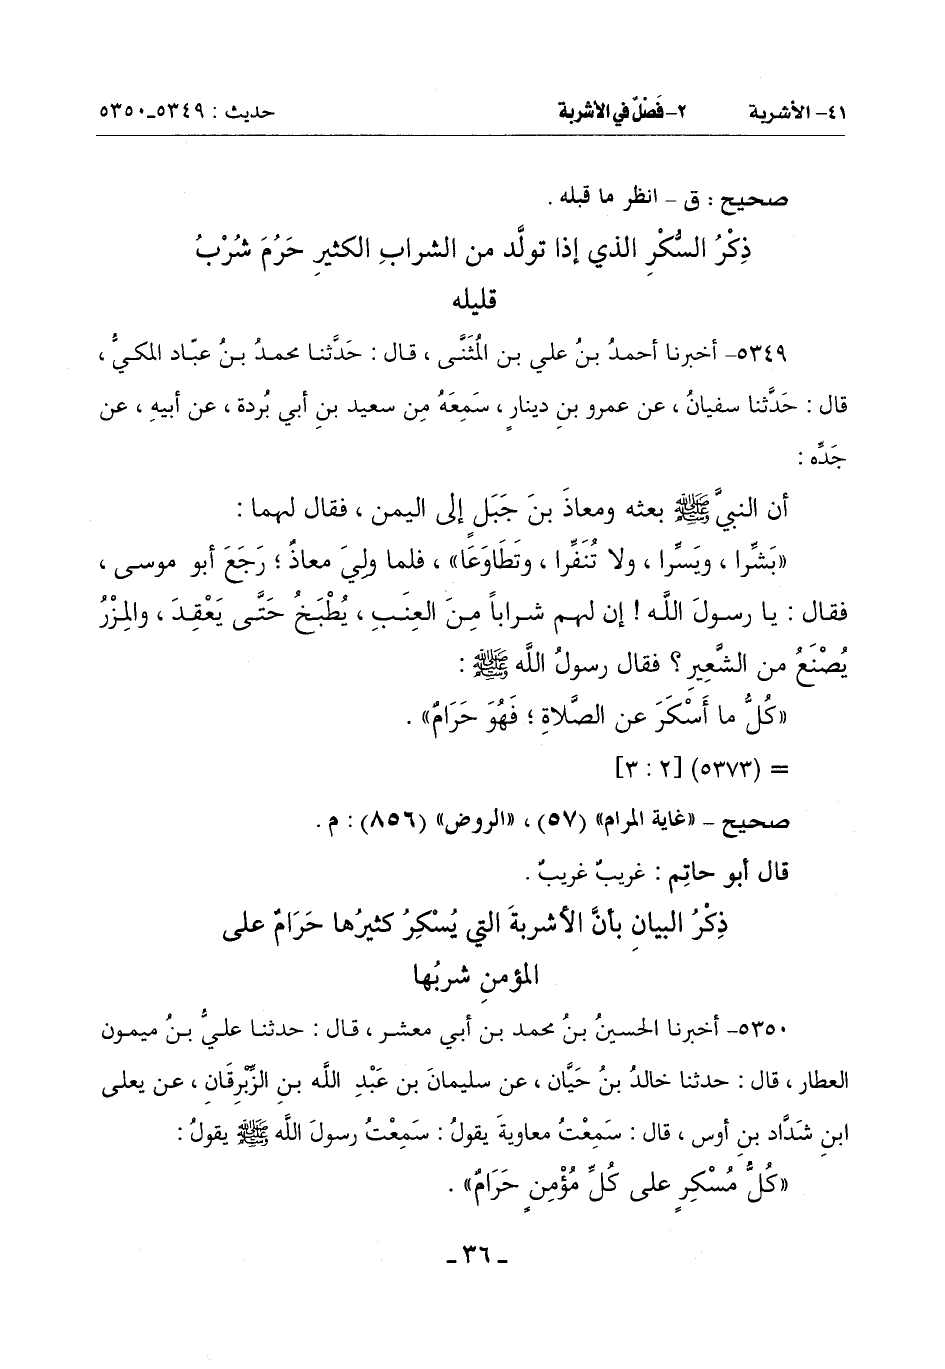 ٤١- الأشربة ٢- فَصْلٌ في الأشربة حديث : ٥٣٤٩-٥٣٥٠
صحيح : ق - انظر ما قبله .
ذِكْرُ السُّكْرِ الذي إذا تولَّد من الشرابِ الكثيرِ حَرُمَ شُرْبُ
قليله
٥٣٤٩- أخبرنا أحمدُ بنُ علي بن المُثَنَّى ، قال : حَدَّثنا محمدُ بنُ عبّاد المكيُّ ،
قال : حَدَّثنا سفيانُ ، عن عمرو بنِ دينارٍ ، سَمِعَهُ مِن سعيد بنِ أبي بُردة ، عن أبيهِ ، عن
جَدِّه :
أن النبيَّ ﷺ بعثه ومعاذَ بنَ جَبَلٍ إلى اليمن ، فقال لهما :
«بَشِّرا ، ويَسِّرا ، ولا تُنَفِّرا ، وتَطَاوَعَا» ، فلما ولِيَ معاذٌ ؛ رَجَعَ أبو موسى ،
فقال : يا رسولَ اللَّه ! إن لهم شراباً مِنَ العِنَبِ ، يُطْبَخُ حَتَّى يَعْقِدَ ، والمِزْرُ
يُصْنَعُ من الشَّعِيرِ ؟ فقال رسولُ اللَّه ﷺ :
«كُلُّ ما أَسْكَرَ عن الصَّلاةِ ؛ فَهُوَ حَرَامٌ» .
= (٥٣٧٣) [٢ : ٣]
صحيح - «غاية المرام» (٥٧) ، «الروض» (٨٥٦) : م .
قال أبو حاتِم : غريبٌ غريبٌ .
ذِكْرُ البيانِ بأنَّ الأشربةَ التي يُسْكِرُ كثيرُها حَرَامٌ على
المؤمنِ شربُها
٥٣٥٠- أخبرنا الحسينُ بنُ محمد بن أبي معشر ، قال : حدثنا عليُّ بنُ ميمون
العطار ، قال : حدثنا خالدُ بنُ حَيَّان ، عن سليمانَ بن عَبْدِ اللَّه بنِ الزِّبْرِقَان ، عن يعلى
ابنِ شَدَّاد بنِ أوس ، قال : سَمِعْتُ معاويةَ يقولُ : سَمِعْتُ رسولَ اللَّه ﷺ يقولُ :
«كُلُّ مُسْكِرٍ على كُلِّ مُؤْمِنٍ حَرَامٌ» .
- ٣٦ -